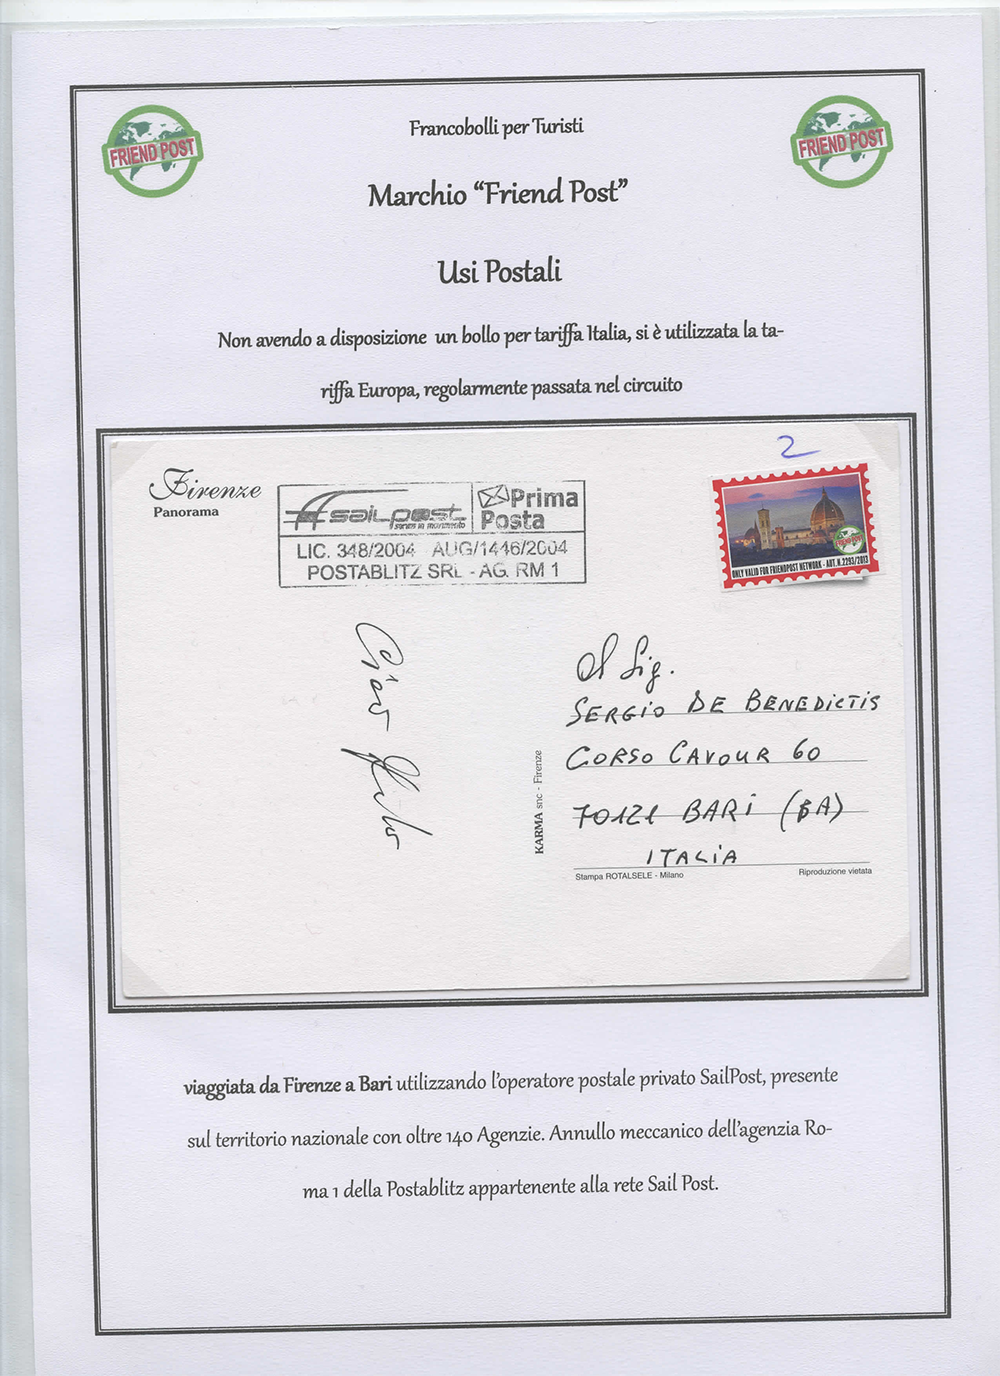 FRIEND POST
FRIEND POST
Francobolli per Turisti
Marchio “Friend Post”
Usi Postali
Non avendo a disposizione un bollo per tariffa Italia, si è utilizzata la ta-
riffa Europa, regolarmente passata nel circuito
2
Firenze
Panorama
sailpost
Prima
Posta
LIC. 348/2004 AUG/1446/2004
POSTABLITZ SRL - AG. RM 1
ONLY VALID FOR FRIENDPOST NETWORK - AUT. N. 2293/2013
Ciao
Al Sig.
SERGIO DE BENEDICTIS
CORSO CAVOUR 60
70121 BARI (BA)
ITALIA
KARMA snc - Firenze
Stampa ROTALSELE - Milano
Riproduzione vietata
viaggiata da Firenze a Bari utilizzando l’operatore postale privato SailPost, presente
sul territorio nazionale con oltre 140 Agenzie. Annullo meccanico dell’agenzia Ro-
ma 1 della Postablitz appartenente alla rete Sail Post.